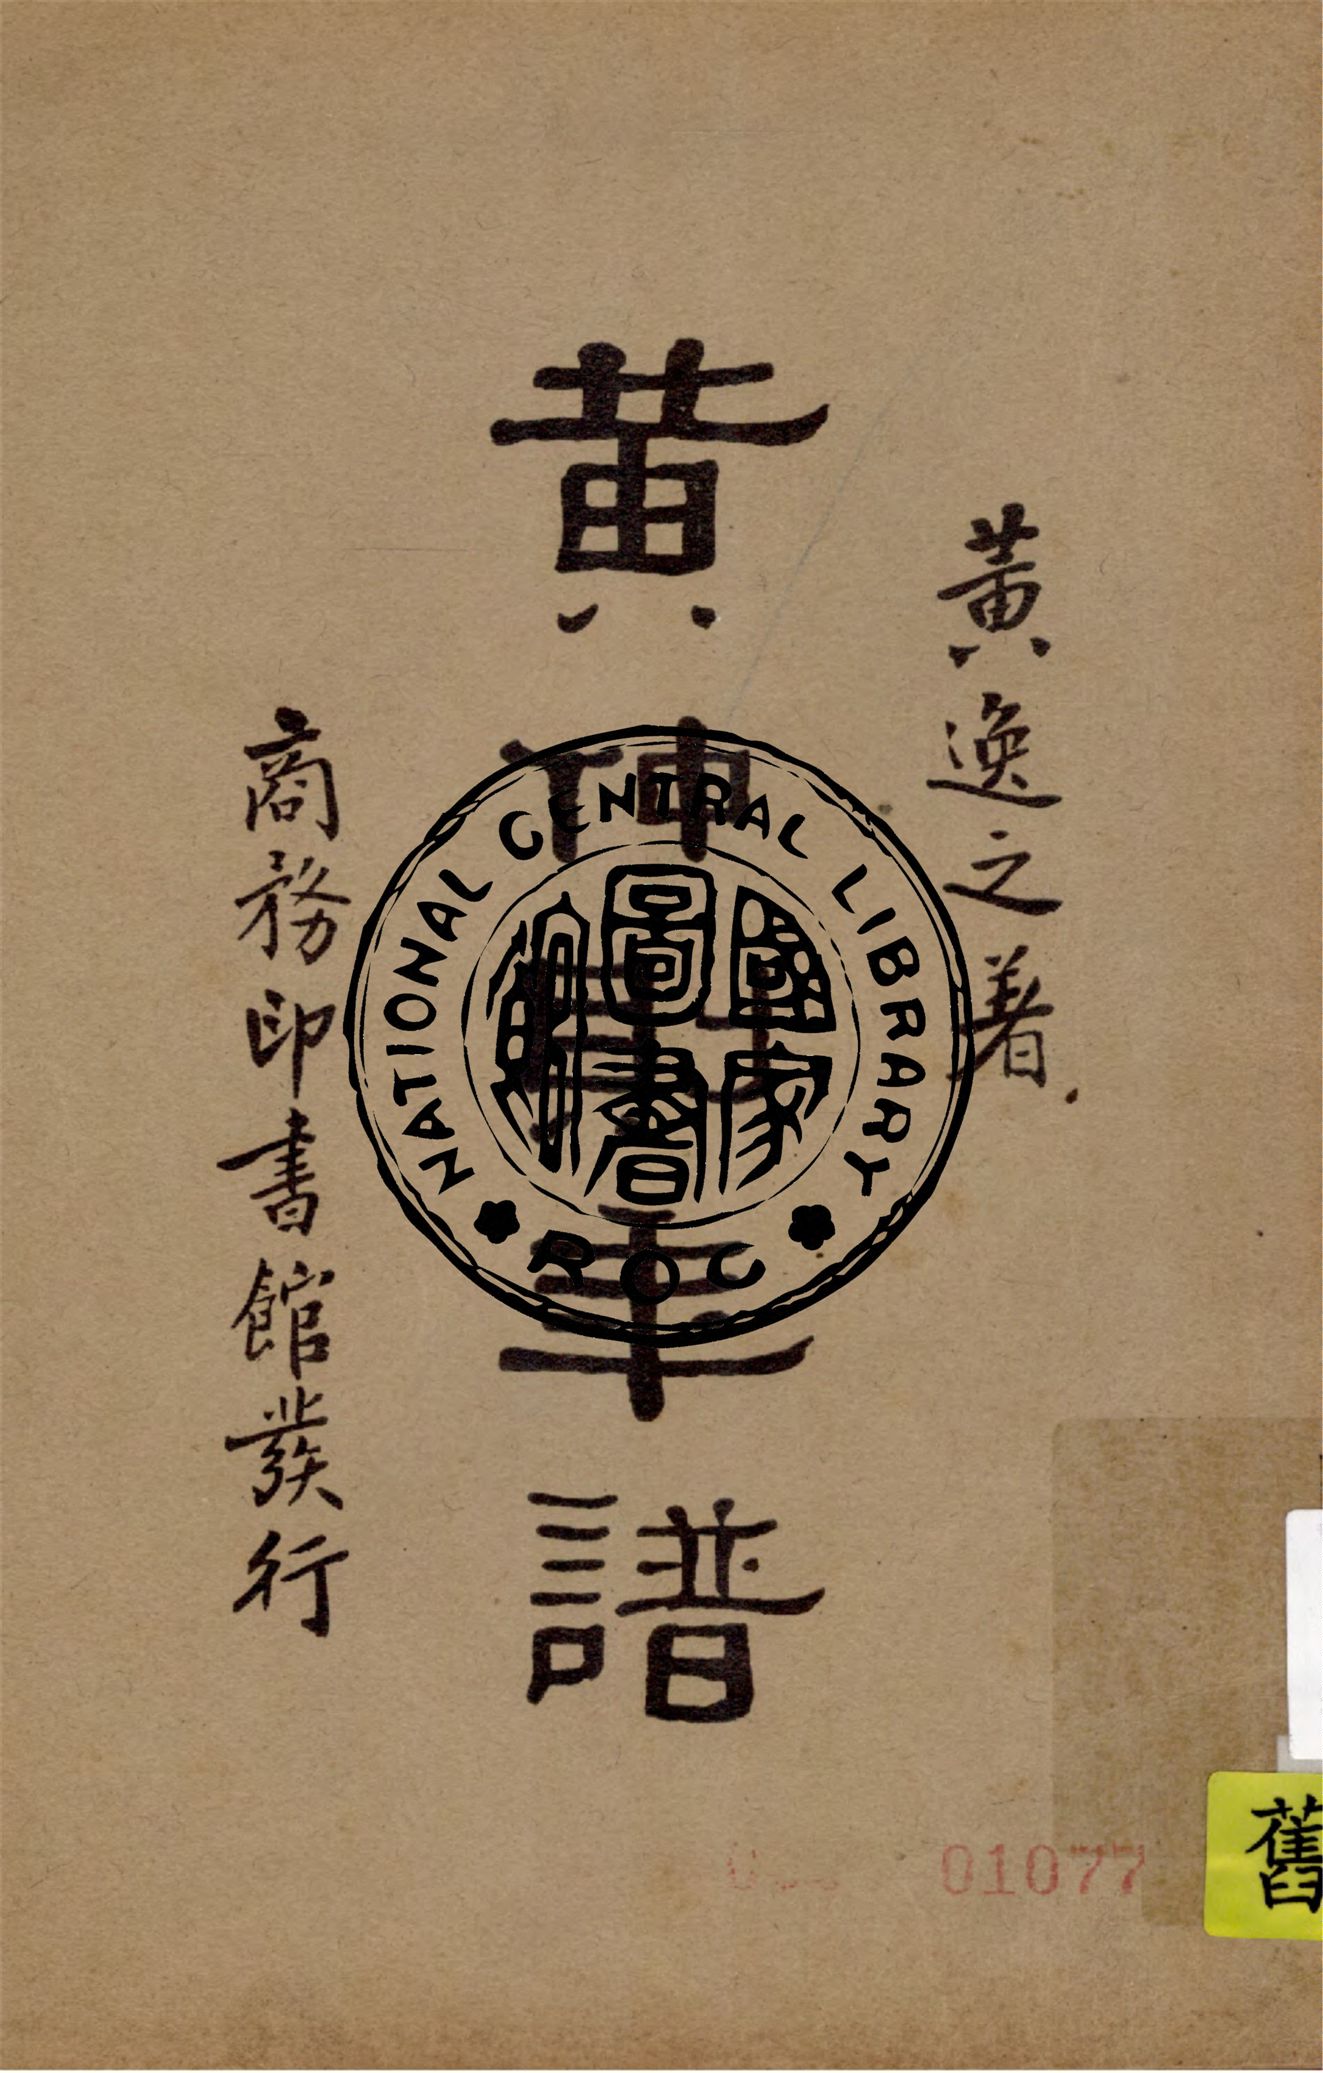 黃逸之著
黃仲則年譜
商務印書館發行
NATIONAL CENTRAL LIBRARY
國家圖書館
ROC
01077
舊